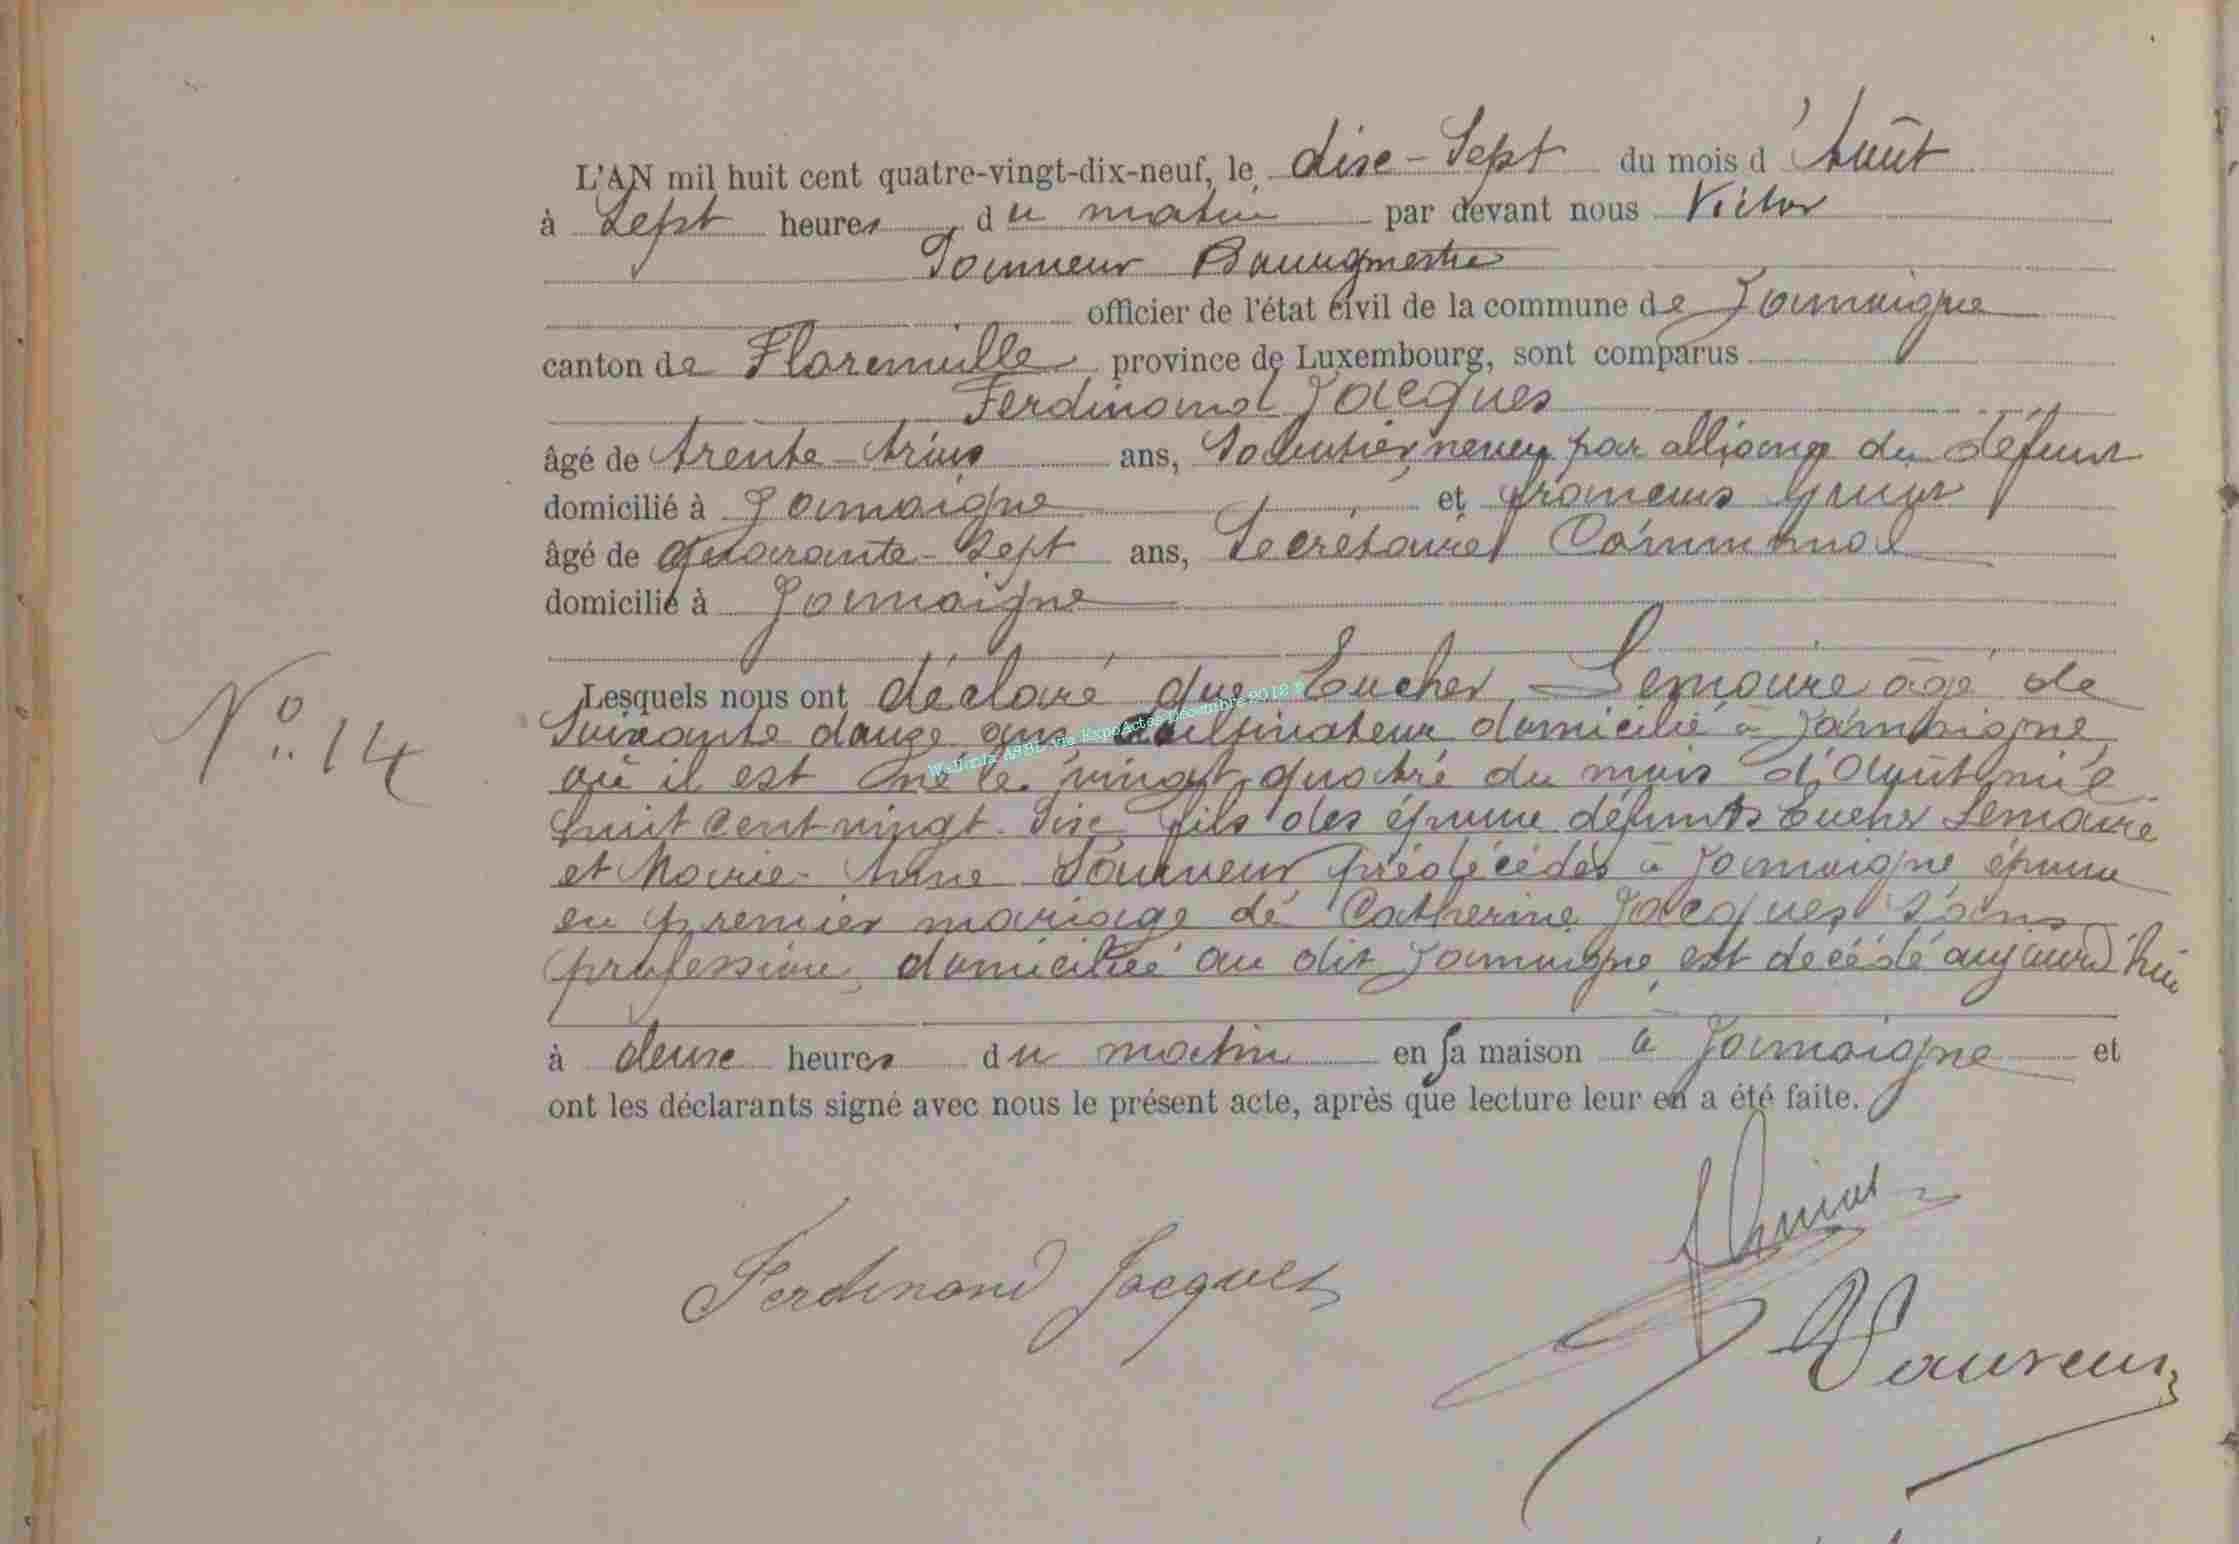 L'AN mil huit cent quatre-vingt-dix-neuf, le dise-Sept du mois d'Août
à Sept heures du matin par devant nous Victor
Bourgmestre
officier de l'état civil de la commune de Jamoigne
canton de Florenville province de Luxembourg, sont comparus
Ferdinand Jacques
âgé de trente-trois ans, neveu par alliance du défunt
domicilié à Jamoigne et François
âgé de quarante-sept ans, Secrétaire Communal
domicilié à Jamoigne
N° 14
Lesquels nous ont déclaré que Eucher Lemaire âgé de
Soixante douze ans cultivateur domicilié à Jamoigne
où il est né le vingt-quatre du mois d'Août mil
huit cent vingt-six fils des époux défunts Eucher Lemaire
et Marie-Anne prédécédés à Jamoigne époux
en premier mariage de Catherine Jacques sans
profession, domiciliée au dit Jamoigne, est décédé aujourd'hui
à deuse heures du matin en sa maison à Jamoigne et
ont les déclarants signé avec nous le présent acte, après que lecture leur en a été faite.
Ferdinand Jacques
Wallonia ASBL via ExpoActes Décembre 2012